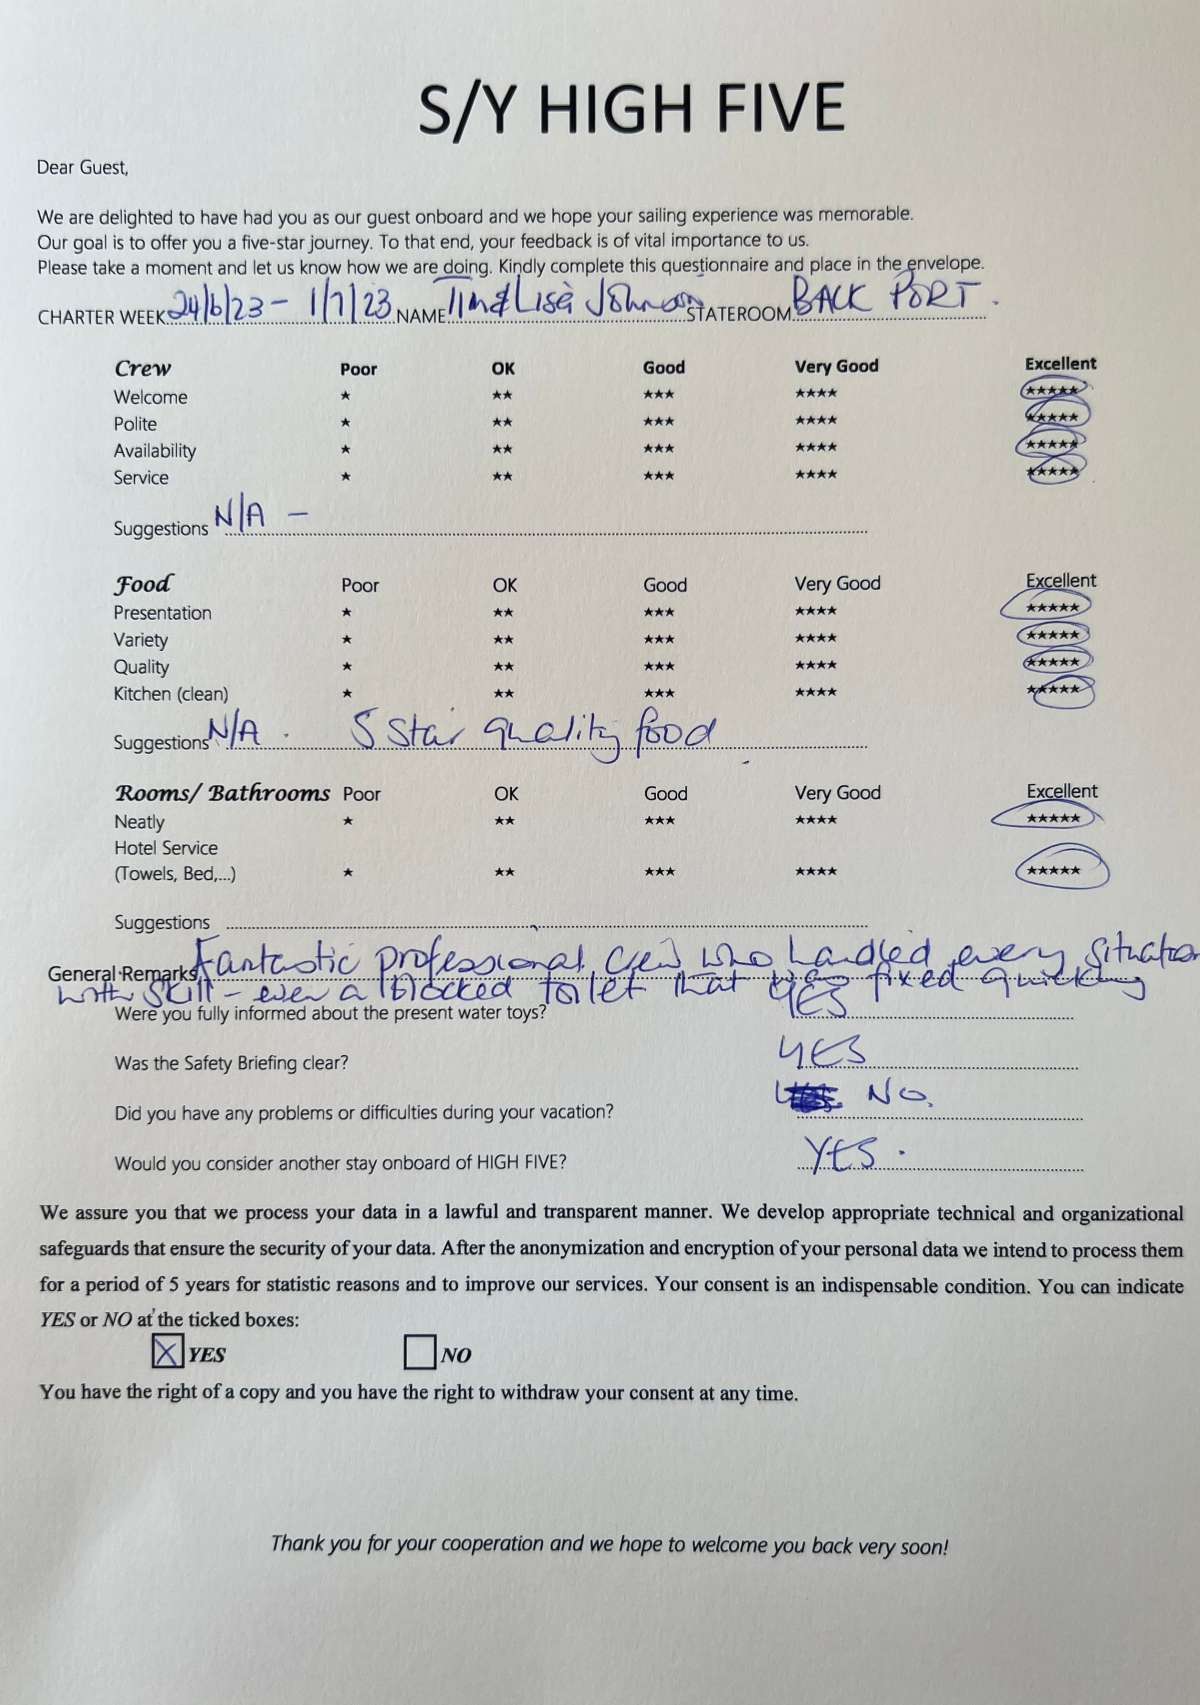 S/Y HIGH FIVE
Dear Guest,
We are delighted to have had you as our guest onboard and we hope your sailing experience was memorable.
Our goal is to offer you a five-star journey. To that end, your feedback is of vital importance to us.
Please take a moment and let us know how we are doing. Kindly complete this questionnaire and place in the envelope.
CHARTER WEEK 24/6/23 - 1/7/23 NAME Tim & Lisa Johnson STATEROOM BACK PORT.
Crew Poor OK Good Very Good Excellent
Welcome ★ ★★ ★★★ ★★★★ ★★★★★
Polite ★ ★★ ★★★ ★★★★ ★★★★★
Availability ★ ★★ ★★★ ★★★★ ★★★★★
Service ★ ★★ ★★★ ★★★★ ★★★★★
Suggestions N/A -
Food Poor OK Good Very Good Excellent
Presentation ★ ★★ ★★★ ★★★★ ★★★★★
Variety ★ ★★ ★★★ ★★★★ ★★★★★
Quality ★ ★★ ★★★ ★★★★ ★★★★★
Kitchen (clean) ★ ★★ ★★★ ★★★★ ★★★★★
Suggestions N/A. 5 Star quality food
Rooms/ Bathrooms Poor OK Good Very Good Excellent
Neatly ★ ★★ ★★★ ★★★★ ★★★★★
Hotel Service
(Towels, Bed,...) ★ ★★ ★★★ ★★★★ ★★★★★
Suggestions
General Remarks Fantastic professional crew who handled every situation
with skill - even a blocked toilet that was fixed quickly
Were you fully informed about the present water toys? YES
Was the Safety Briefing clear? YES
Did you have any problems or difficulties during your vacation? NO.
Would you consider another stay onboard of HIGH FIVE? YES.
We assure you that we process your data in a lawful and transparent manner. We develop appropriate technical and organizational
safeguards that ensure the security of your data. After the anonymization and encryption of your personal data we intend to process them
for a period of 5 years for statistic reasons and to improve our services. Your consent is an indispensable condition. You can indicate
YES or NO at the ticked boxes:
☒ YES ☐ NO
You have the right of a copy and you have the right to withdraw your consent at any time.
Thank you for your cooperation and we hope to welcome you back very soon!